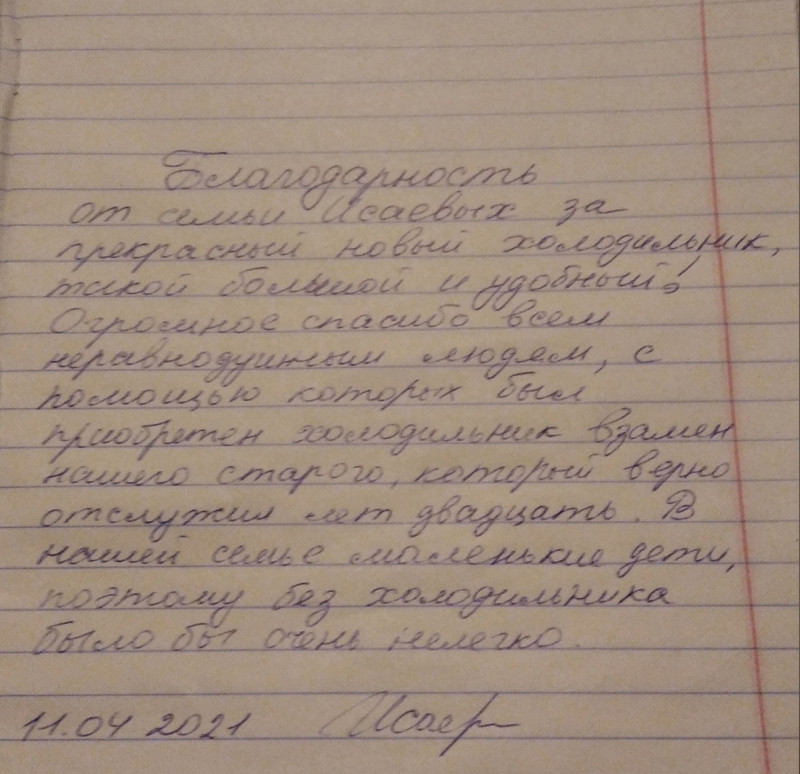 Благодарность
от семьи Исаевых за
прекрасный новый холодильник,
такой большой и удобный!
Огромное спасибо всем
неравнодушным людям, с
помощью которых был
приобретен холодильник взамен
нашего старого, который верно
отслужил лет двадцать. В
нашей семье маленькие дети,
поэтому без холодильника
было бы очень нелегко.
11.04 2021